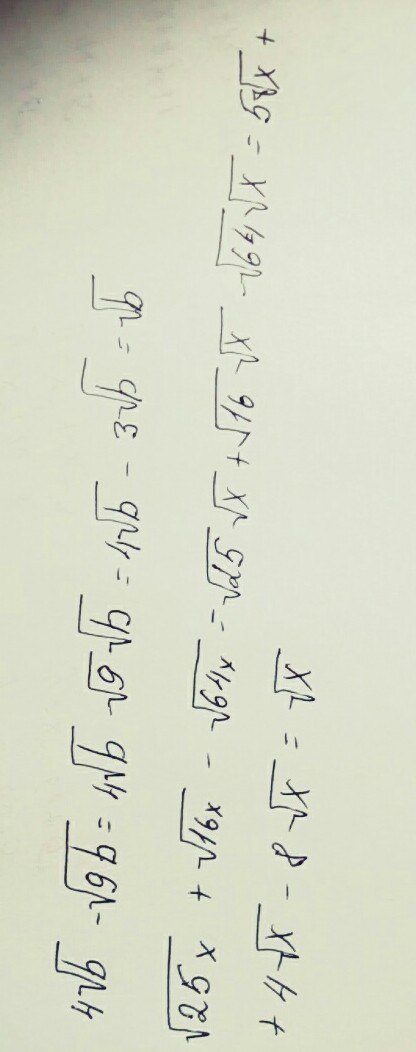 4√b - √9b = 4√b - √9 √b = 4√b - 3√b = √b
√25x + √16x - √64x = √25 √x + √16 √x - √64 √x = 5√x +
+ 4√x - 8√x = √x